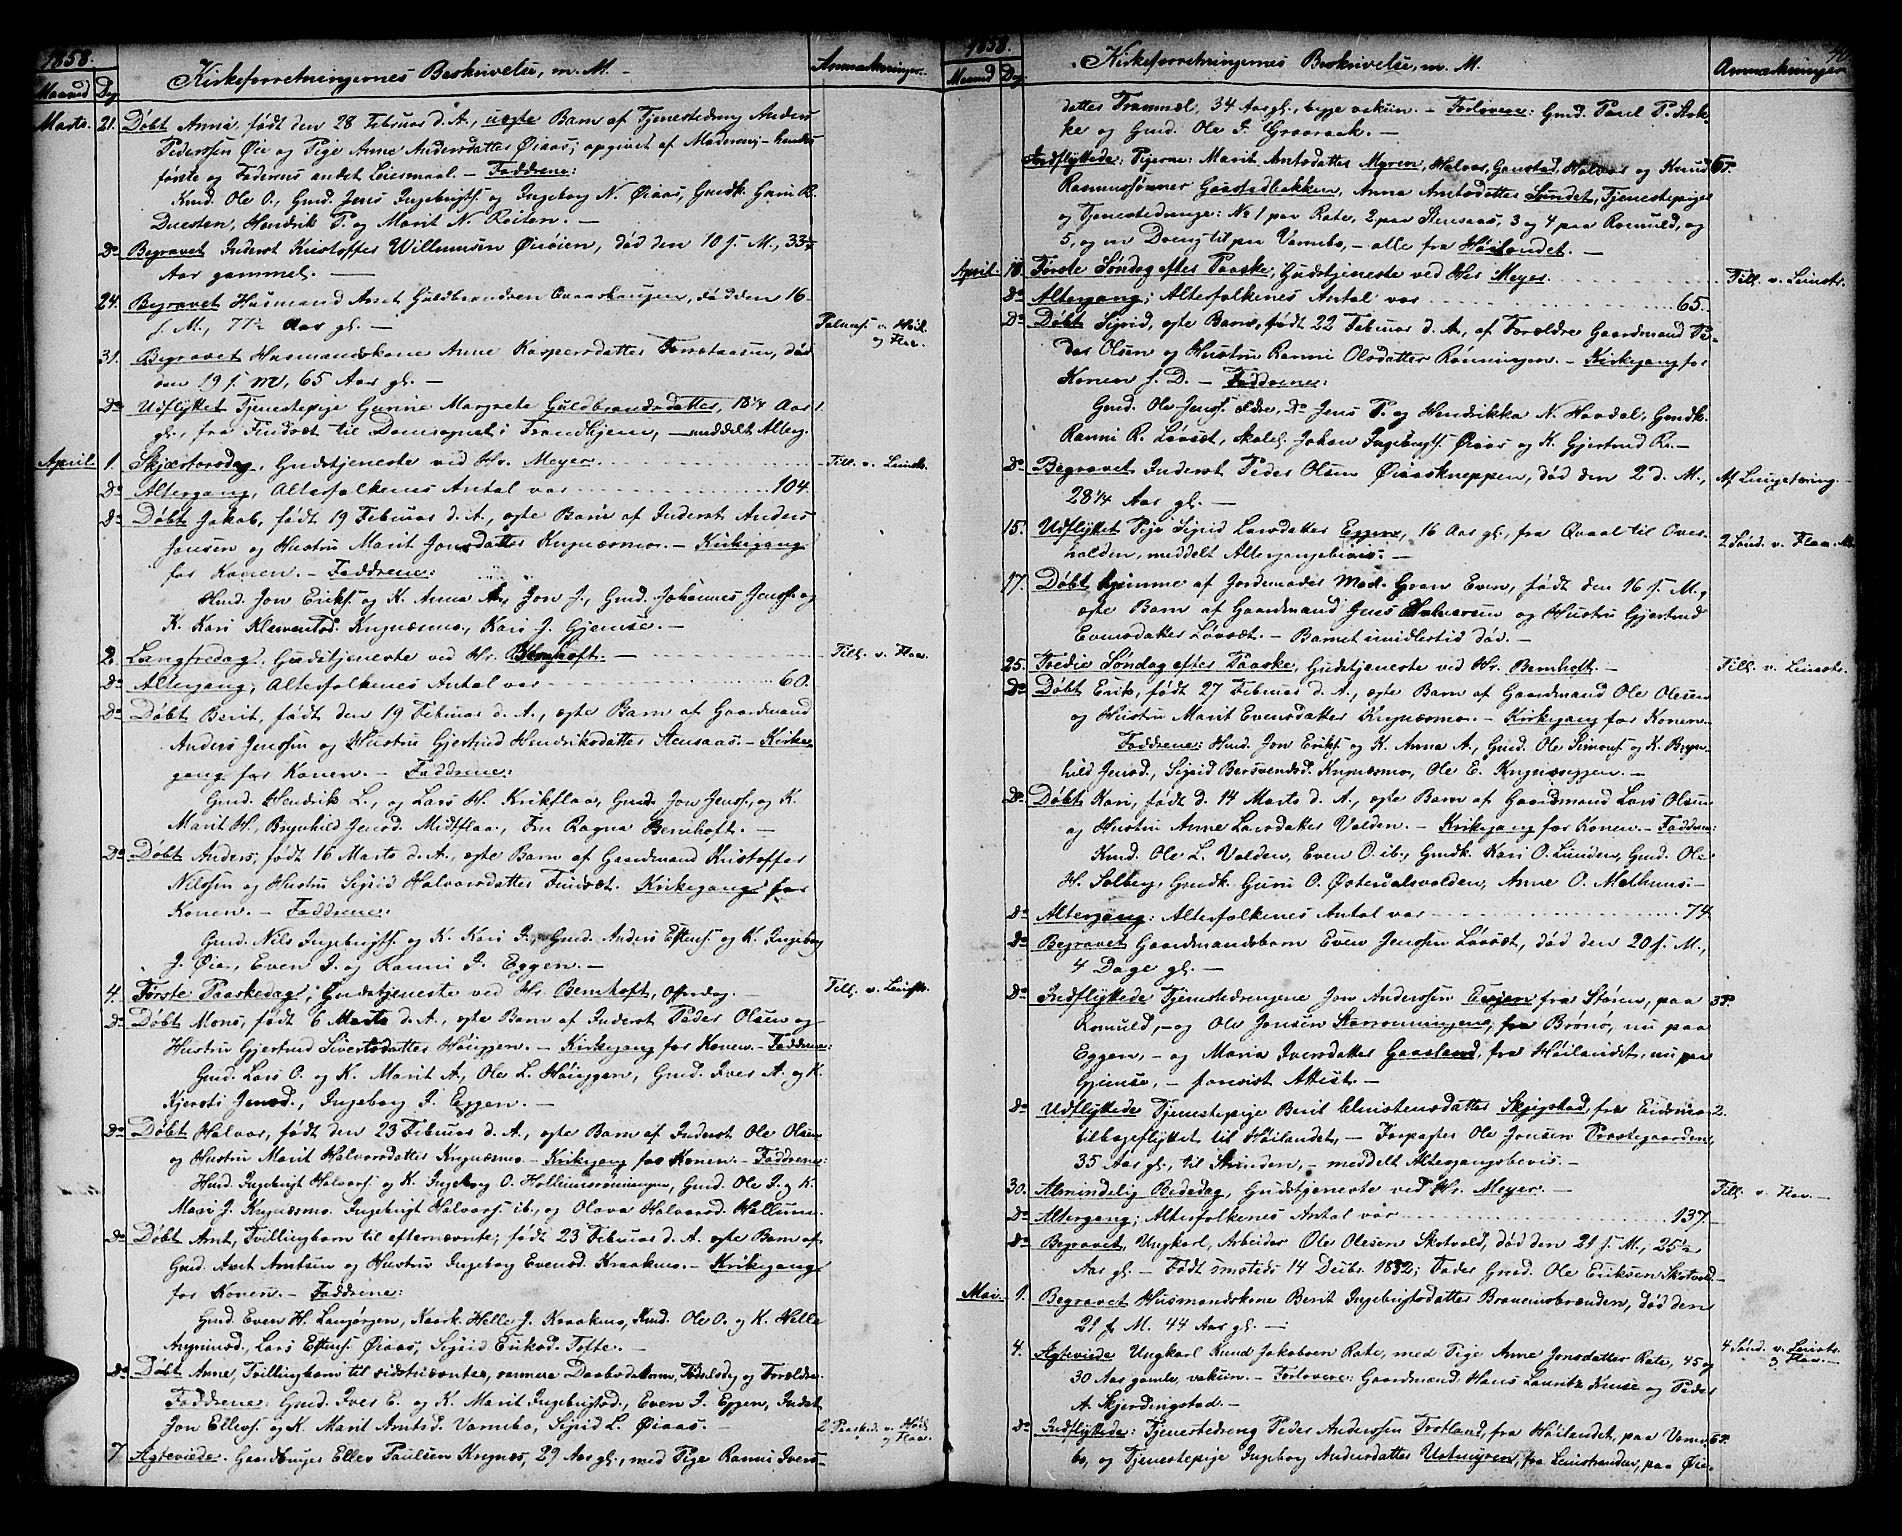 1858.
Kirkeforretningernes Beskrivelse, m. M.
Anmærkninger.
Maaned Dag
Marts. 21. Døbt Anne, født den 28 Februar d. A., uegte Barn af Tjenestedreng Anders
Pederssen Øie og Pige Anne Andersdatter Øiaas; opgivet af Moderen, hendes
første og Faderens andet Leiermaal. — Faddrene:
Knud. Ole O., Gmd. Jens Ingebrigts. og Ingeborg N. Øiaas, Gmdk. Guru R.
Duesten, Hendrik P. og Marit N. Roiten. —
Do Begravet Inderst Kristoffer Willumsen Øiøien, død den 10 f. M., 33½
Aar gammel. —
24. Begravet Husmand Arnt Guldbrandsen Qvaashaugen, død den 16
f. M., 77½ Aar gl. —
31. Begravet Husmandskone Anne Kaspersdatter Forsetaasen, død
den 19 f. M, 65 Aar gl. —
Palmes. v. Høil.
og Flaa.
Do Udflyttet Tjenestepige Gurine Margrete Guldbrandsdatter, 18¼ Aar
gl., fra Findset til Domsognet i Trondhjem, — meddelt Alterg.
1.
April. 1. Skjærtorsdag, Gudstjeneste ved Hr. Meyer.
Till. v. Leinstr.
Do Altergang, Alterfolkenes Antal var 104.
Do Døbt Jakob, født 19 Februar d. A., egte Barn af Inderst Anders
Jonsen og Hustru Marit Jonsdatter Kregnæsmo. — Kirkegang
for Konen. — Faddrene:
Hmd. Jon Eriks. og K. Anna A., Jon J., Gmd. Johannes Jens. og
K. Kari Klemetsd. Kregnæsmo, Kari J. Gjemse. —
2. Langfredag, Gudstjeneste ved Hr. Bernhoft. —
Till. v. Flaa.
Do Altergang; Alterfolkenes Antal var 60.
Do Døbt Berit, født den 19 Februar d. A., egte Barn af Gaardmand
Anders Jenssen og Hustru Gjertrud Hendriksdatter Stensaas. — Kirke-
gang for Konen. — Faddrene:
Gmd. Hendrik L., og Lars H. Krikflaa, Gmd. Jon Jens., og K.
Marit H., Brynhild Jensd. Midtflaa, Fru Ragna Bernhoft. —
Do Døbt Anders, født 16 Marts d. A., egte Barn af Gaardmand Kristoffer
Nilssen og Hustru Sigrid Halvorsdatter Findsæt. Kirkegang for
Konen. — Faddrene:
Gmd. Nils Ingebrigts. og K. Kari J., Gmd. Anders Ellens. og K. Ingeborg
J. Øie, Even J. og Ranni J. Eggen. —
4. Første Paaskedag, Gudstjeneste ved Hr. Bernhoft, Offerdag. —
Till. v. Leinstr.
Do Døbt Mons, født 6 Marts d. A., egte Barn af Inderst Peder Olsen og
Hustru Gjertrud Sivertsdatter Høieggen. — Kirkegang for Konen. — Faddrene:
Gmd. Lars O. og K. Marit A., Ole L. Høieggen, Gmd. Iver A. og K.
Kjersti Jensd., Ingeborg J. Eggen. —
Do Døbt Halvor, født den 23 Februar d. A., egte Barn af Inderst Ole Olsen
og Hustru Marit Halvorsdatter Kregnæsmo. — Kirkegang for Konen. — Faddrene:
Hmd. Ingebrigt Halvors. og K. Ingeborg O. Hollumsrønningen, Gmd. Ole J. og K.
Mari J. Kregnæsmo, Ingebrigt Halvors. ib., og Olava Halvorsd. Hallum.
Do Døbt Arnt, Tvillingbarn til efternævnte; født 23 Februar d. A. egte Barn af
Gmd. Arnt Arntsen og Hustru Ingeborg Evensd. Kraakmo. — Kirkegang
for Konen. — Faddrene:
Gmd. Even H. Langørgen, Kaark. Helle J. Kraakmo, Gmd. Ole O. og K. Helle
Arntsd., Lars Ellens. Øiaas, Sigrid Eriksd. Tofte. —
Do Døbt Anne, Tvillingbarn til sidstnævnte, samme Daabsdatum, Fødselsdag og Forældre.
Faddrene: Gmd. Iver E. og K. Marit Ingebrigtsd., Even J. Eggen, Inderst
Jon Ellevs. og K. Marit Arntsd. Vammbo, Sigrid L. Øiaas. —
2 Paasked. v. Høil.
og Flaa.
7 Ægteviede. Gaardbruger Ellev Paulsen Kregnæs, 29 Aar gl., med Pige Ranni Ivers-
1858.
Kirkeforretningernes Beskrivelse, m. M.
Anmærkninger
40
Maaned Dag
datter Trammel, 34 Aar gl., begge vakcin. — Forlovere: Gmd. Paul P. Sok-
ke og Gmd. Ole J. Graaraak. —
Indflyttede: Pigerne: Marit Arntsdatter Myren, Halvor Gaustad, Halvor og Knud
Rasmussønner Gaustadbakken, Anna Arntsdatter Lundet, Tjenestepiger
og Tjenestedrenge: No 1 paa Rate, 2 paa Stensaas, 3 og 4 paa Romuld, og
5, og en Dreng til paa Vammbo, — alle fra Høilandet. —
5P.
April. 18. Første Søndag efter Paaske, Gudstjeneste ved Her Meyer.
Till. v. Leinstr.
Do Altergang; Alterfolkenes Antal var 65.
Do Døbt Sigrid, egte Barn, født 22 Februar d. A., af Forældre Gaardmand Pe-
der Olsen og Hustru Ranni Olsdatter Rønningen. — Kirkegang for
Konen s. D. — Faddrene:
Gmd. Ole Jens. Ældre, Do Jens P. og Hendrikka N. Hovdal, Gmdk.
Ranni R. Løvset, Skolel. Johan Ingebrigts. Øiaas og K. Gjertrud R. —
Do Begravet Inderst Peder Olsen Øiaaskneppen, død den 2 d. M.,
28¼ Aar gl. —
Af Lungetæring. —
15. Udflyttet Pige Sigrid Larsdatter Eggen, 16 Aar gl., fra Qvaal til Over-
halden, meddelt Altergangsbevis. —
2 Sønd. v. Flaa. M.
17. Døbt hjemme af Jordemoder Mad. Gran Even, født den 16 f. M.,
egte Barn af Gaardmand Jens Halvorsen og Hustru Gjertrud
Evensdatter Løvsæt. — Barnet imidlertid død. —
25. Tredie Søndag efter Paaske, Gudstjeneste ved Hr. Bernhoft. —
Till. v. Leinstr.
Do Døbt Erik, født 27 Februar d. A., egte Barn af Gaardmand Ole Olesen
og Hustru Marit Evensdatter Kregnæsmo. — Kirkegang for Konen.
Faddrene: Hmd. Jon Eriks. og K. Anna A., Gmd. Ole Simons. og K. Bryn-
hild Jensd., Sigrid Bersvendsd. Kregnæsmo, Ole E. Kregnæseggen. —
Do Døbt Kari, født d. 14 Marts d. A., egte Barn af Gaardmand Lars Olsen
og Hustru Anne Larsdatter Valden. — Kirkegang for Konen. — Faddrene:
Gmd. Ole L. Valden, Even O. ib., Gmdk. Kari O. Lunden, Gmd. Ole
H. Solberg, Gmdk. Guru O. Østeraalsvolden, Anne O. Melhuus. —
Do Altergang: Alterfolkenes Antal var 74
Do Begravet Gaardmandsbarn Even Jenssen Løvsæt, død den 20 f. M.,
4 Dage gl. —
Do Indflyttede Tjenestedrengene Jon Anderssen Engen fra Støren, paa
Romuld, — og Ole Jonsen Storrønningen, fra Brønø, nu paa
Eggen, — og Maria Iversdatter Gaasland, fra Høilandet, nu paa
Gjemse, — forevist Attest. —
3P.
Do Udflyttede Tjenestepige Berit Christensdatter Skjegstad, fra Eidsmo
tilbageflyttet til Høilandet, — Forpagter Ole Jonsen Præstegaarden,
35 Aar gl., til Strinden, — meddelt Altergangsbevis. —
2.
30. Almindelig Bededag, Gudstjeneste ved Hr. Meyer. —
Till. v. Flaa. —
Do Altergang; Alterfolkenes Antal var 137.
Do Begravet Ungkarl, Arbeider Ole Olesen Skotvold, død den 21 f. M., 25½
Aar gl. — Født imsteds 14 Decbr. 1832; Fader Gmd. Ole Eriksen Skotvold. —
Mai. 1. Begravet Husmandskone Berit Ingebrigtsdatter Bravensbrænden, død den
21 f. M. 44 Aar gl. —
4. Ægteviede Ungkarl Knud Jakobsen Rate, med Pige Anne Jonsdatter Rate, 45 og
30 Aar gamle, vakcin. — Forlovere: Gaardmænd. Hans Lauritz Huse og Peder
A. Skjerdingstad. —
4 Sønd. v. Leinstr.
og Flaa. —
Do Indflyttede: Tjenestedreng Peder Anderssen Trotland, fra Høilandet, paa Vamm-
bo, og Tjenestepige Ingeborg Andersdatter Ustmyren, fra Leinstranden, paa Øie.
6P.